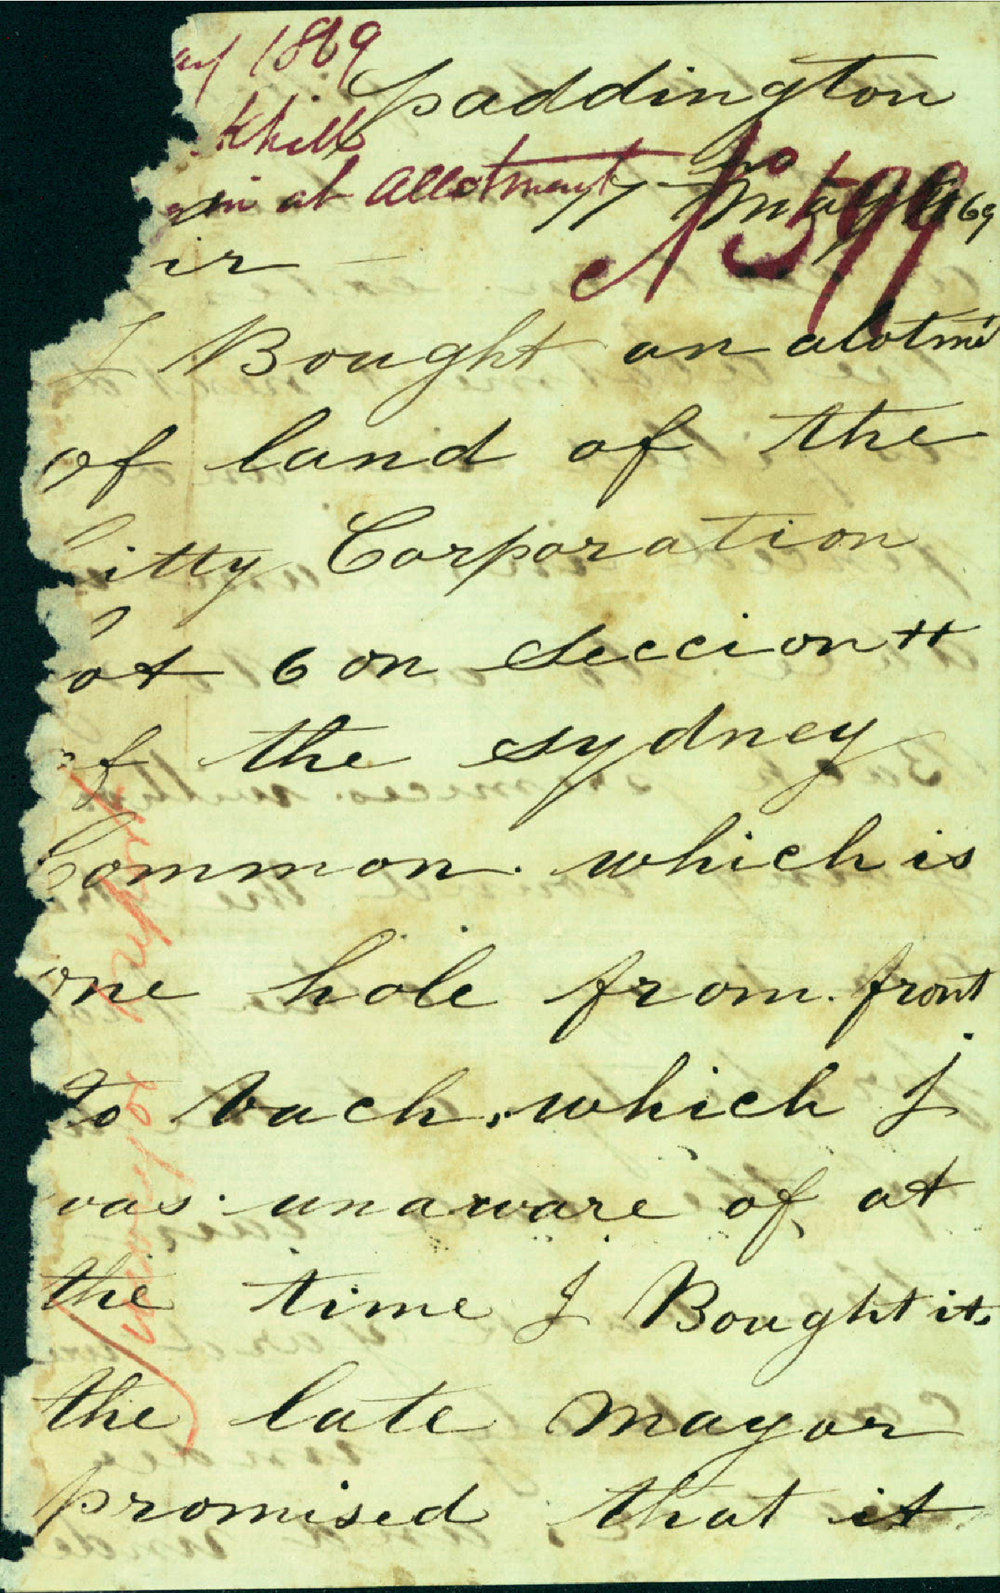 1869
Paddington
khill
in at Allotment
No 599
17 May 1869
ir
I Bought an alotmt
of land of the
itty Corporation
ot 6 on Seccion H
of the Sydney
Common. which is
one hole from. front
to back, which I
was unaware of at
the time I Bought it.
the late Mayor
promised that it